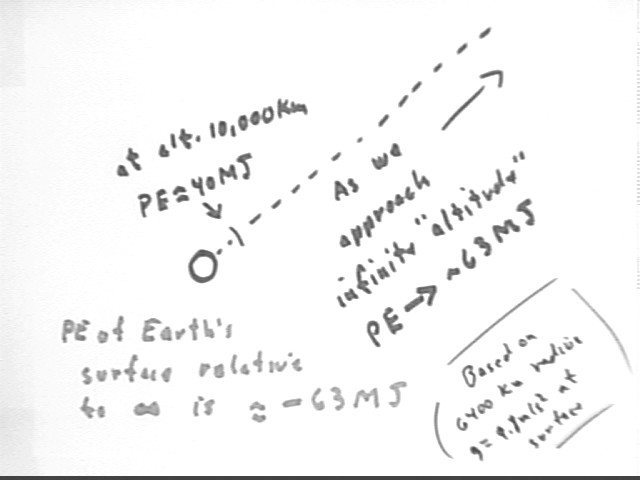 at alt. 10,000 Km
PE ≈ 40 MJ
As we
approach
infinite "altitude"
PE → ~63 MJ
PE of Earth's
surface relative
to ∞ is ≈ -63 MJ
Based on
6400 Km radius
g = 9.8 m/s² at
surface